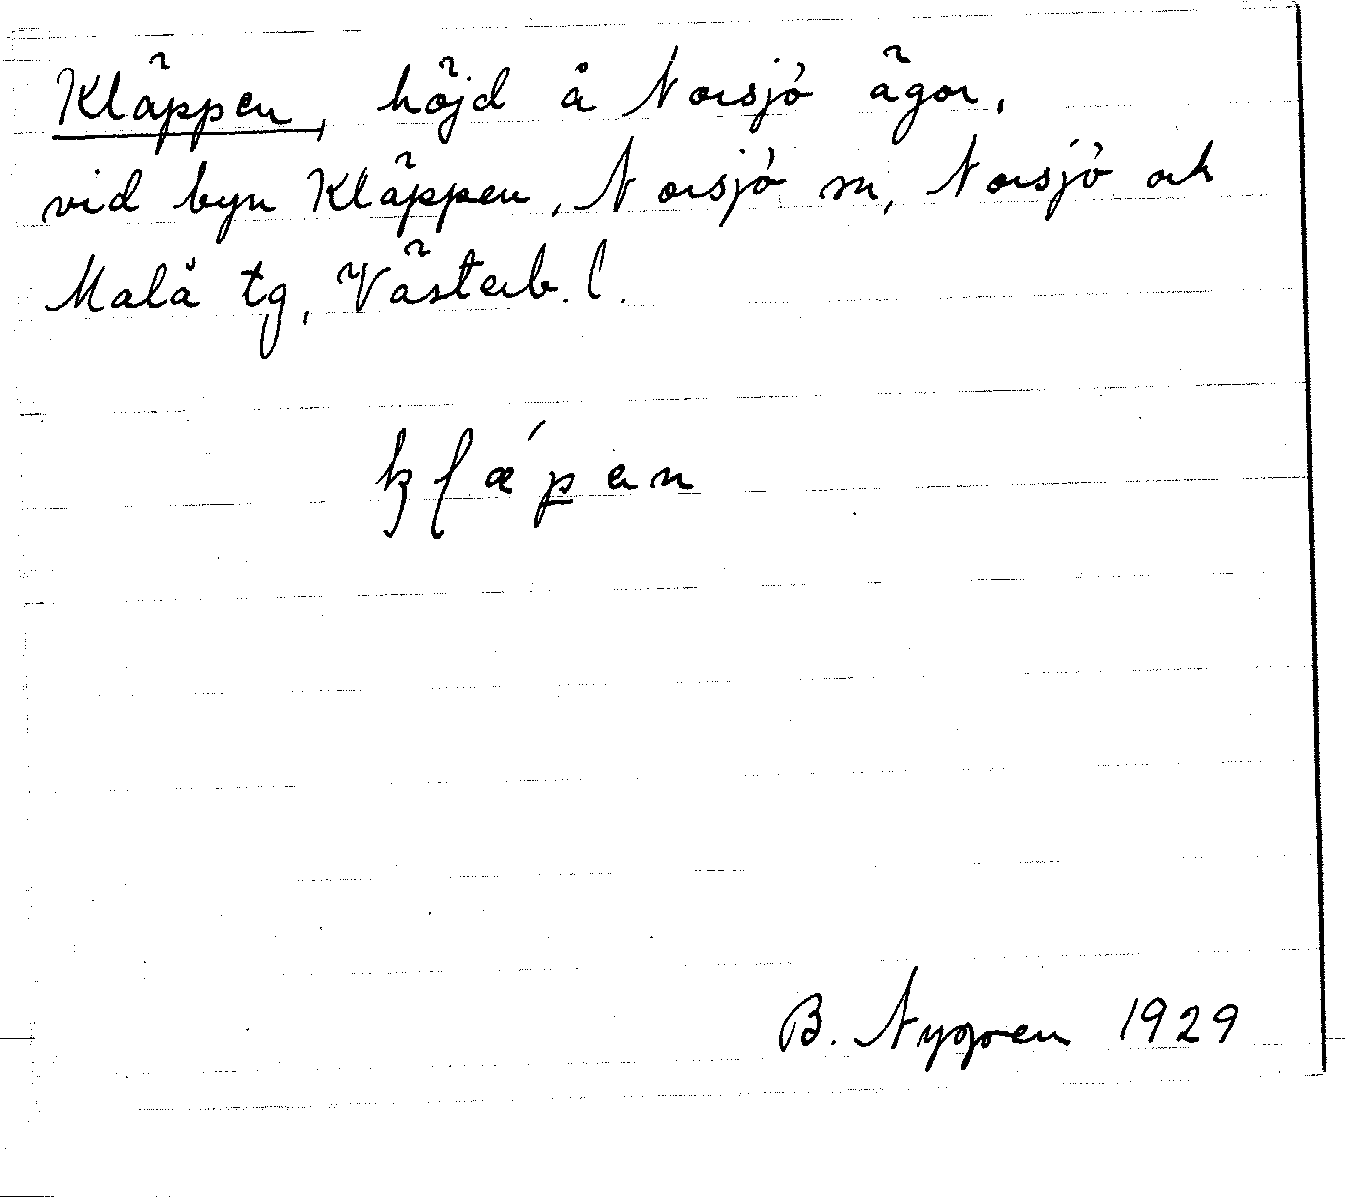 Kläppen, höjd å Norsjö ägor,
vid byn Kläppen, Norsjö sn, Norsjö och
Malå tg, Västerb. l.
kḷæ´pen
B. Nygren 1929